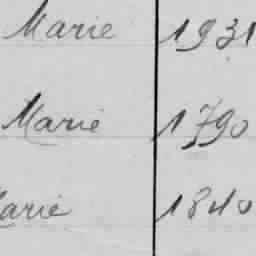 Marie 1931
Marie 1790
Marie 1840